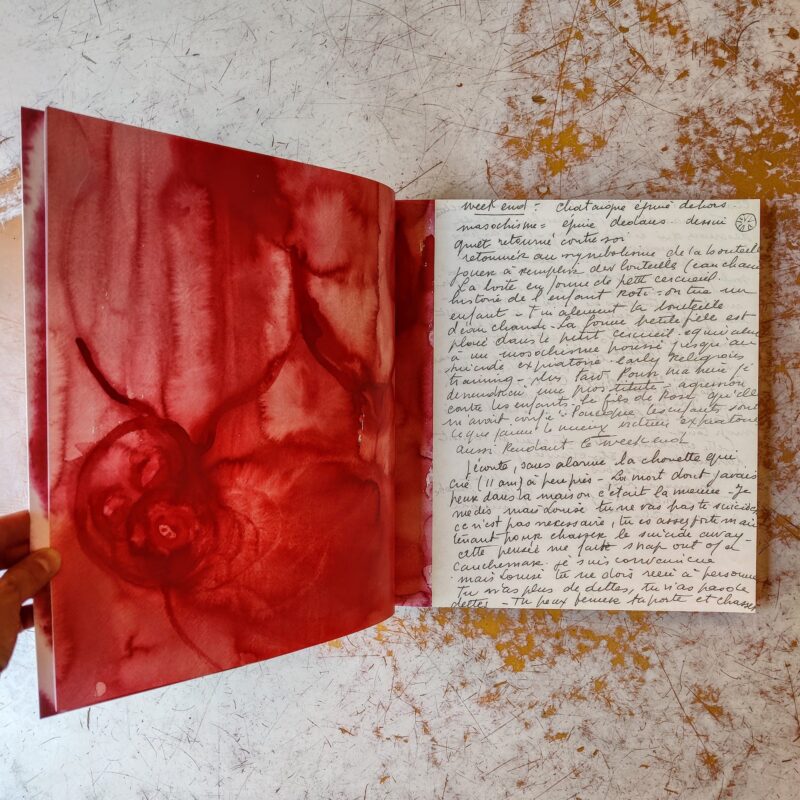 week end = chataigne épine dehors
masochisme = épine dedans dessin
qu'et retourné contre soi
retourner au symbolisme de la bouteille
jouer à remplir des bouteilles (eau chaude
La boite en forme de petit cercueil
histoire de l'enfant roti - on tue un
enfant - équivalent la bouteille
d'eau chaude - La bonne petite fille est
placé dans le petit cercueil - équivalent
à un masochisme poussé jusqu'au
suicide expiatoire - early religious
training - plus tard pour me tuer je
deviendrai une prostituée - agression
contre les enfants. Le fils de Rose qu'elle
m'avait confié - Pourquoi les enfants sont
ce que j'aime le mieux victime expiatoire
aussi Pendant le week end
j'écoute, sans alarme la chouette qui
crie (11 am) à peu près - La mort dont j'avais
peur dans la maison c'était la mienne - Je
me dis mais Louise tu ne vas pas te suicider,
ce n'est pas nécessaire, tu es assez forte main
tenant pour chasser le suicide away -
cette pensée me fait snap out of a
cauchemar. je suis convaincue
mais Louise tu ne dois rien à personne
tu n'as plus de dettes, tu n'as pas de
dettes - Tu peux fermer ta porte et chasser